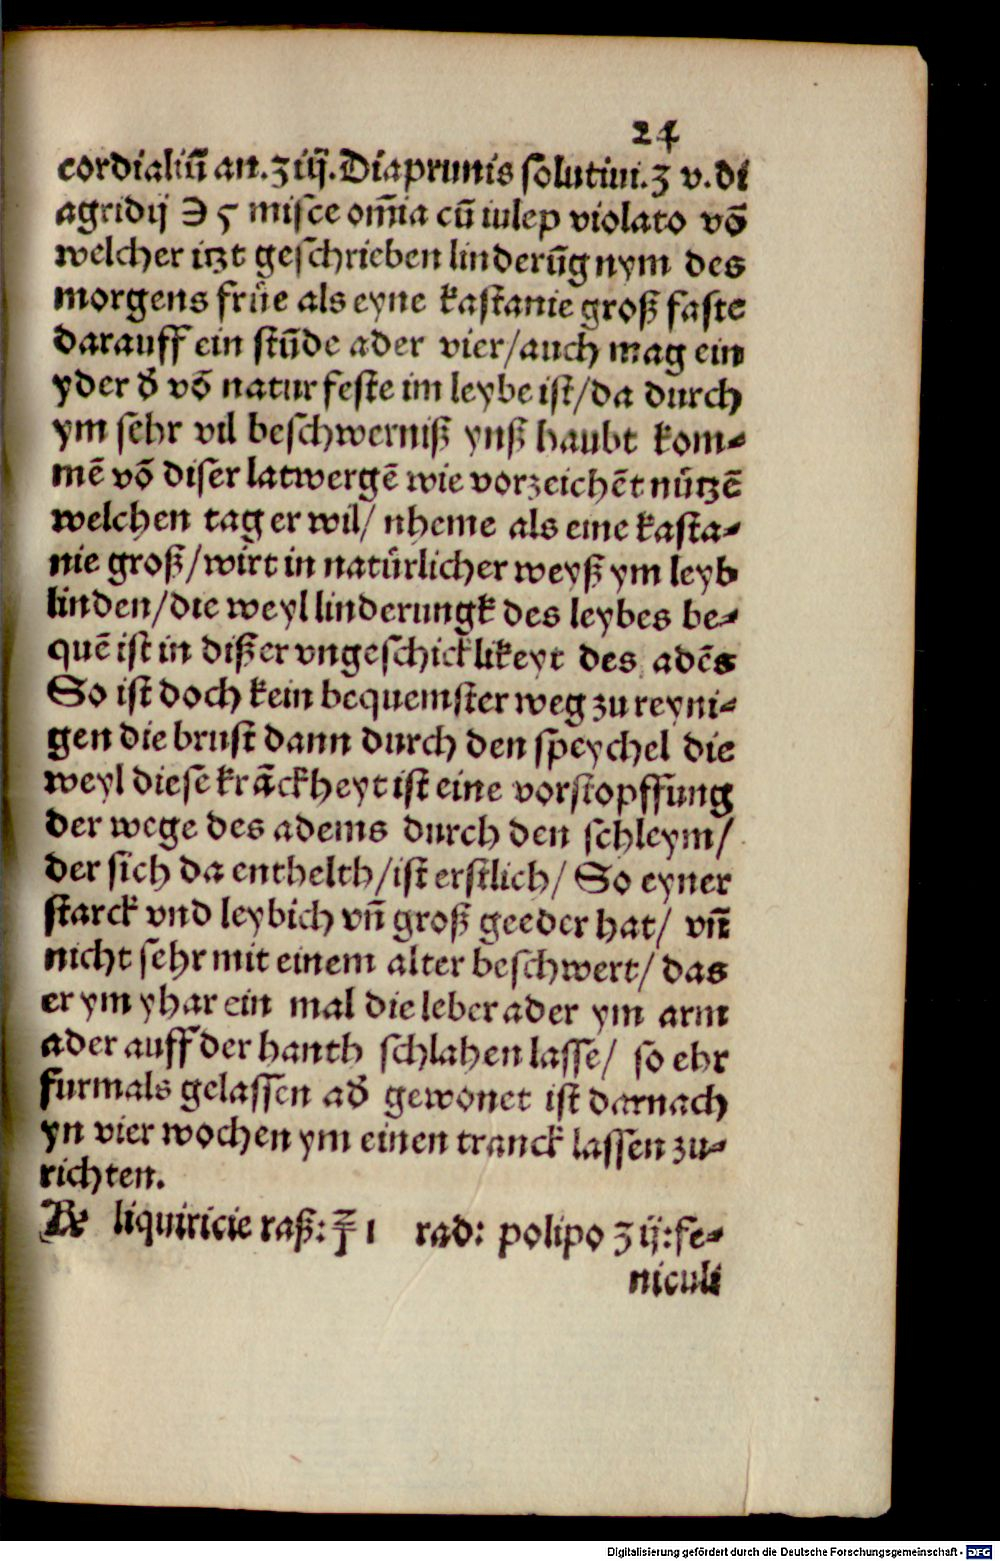 24
cordialiū an. ʒ iij. Diaprunis solutiui. ʒ v. di
agridij ℈ ϛ misce om̄ia cū iulep violato vō
welcher itzt geschrieben linderūg nym des
morgens frůe als eyne kastanie groß faste
darauff ein stūde ader vier/auch mag ein
yder đ vō natur feste im leybe ist/da durch
ym sehr vil beschwerniß ynß haubt kom⸗
mē vō diser latwergē wie vorzeichēt nützē
welchen tag er wil/ nheme als eine kasta⸗
nie groß/wirt in natürlicher weyß ym leyb
linden/die weyl linderungk des leybes be⸗
quē ist in dißer vngeschicklikeyt des adēs
So ist doch kein bequemster weg zu reyni⸗
gen die brust dann durch den speychel die
weyl diese krāckheyt ist eine vorstopffung
der wege des adems durch den schleym/
der sich da enthelth/ist erstlich/ So eyner
starck vnd leybich vn̄ groß geeder hat/ vn̄
nicht sehr mit einem alter beschwert/ das
er ym yhar ein mal die leber ader ym arm
ader auff der hanth schlahen lasse/ so ehr
furmals gelassen ađ gewonet ist darnach
yn vier wochen ym einen tranck lassen zu⸗
richten.
℞ liquiricie raß: ℥ 1 rad: polipo ʒ ij: fe⸗
niculi
Digitalisierung gefördert durch die Deutsche Forschungsgemeinschaft - DFG